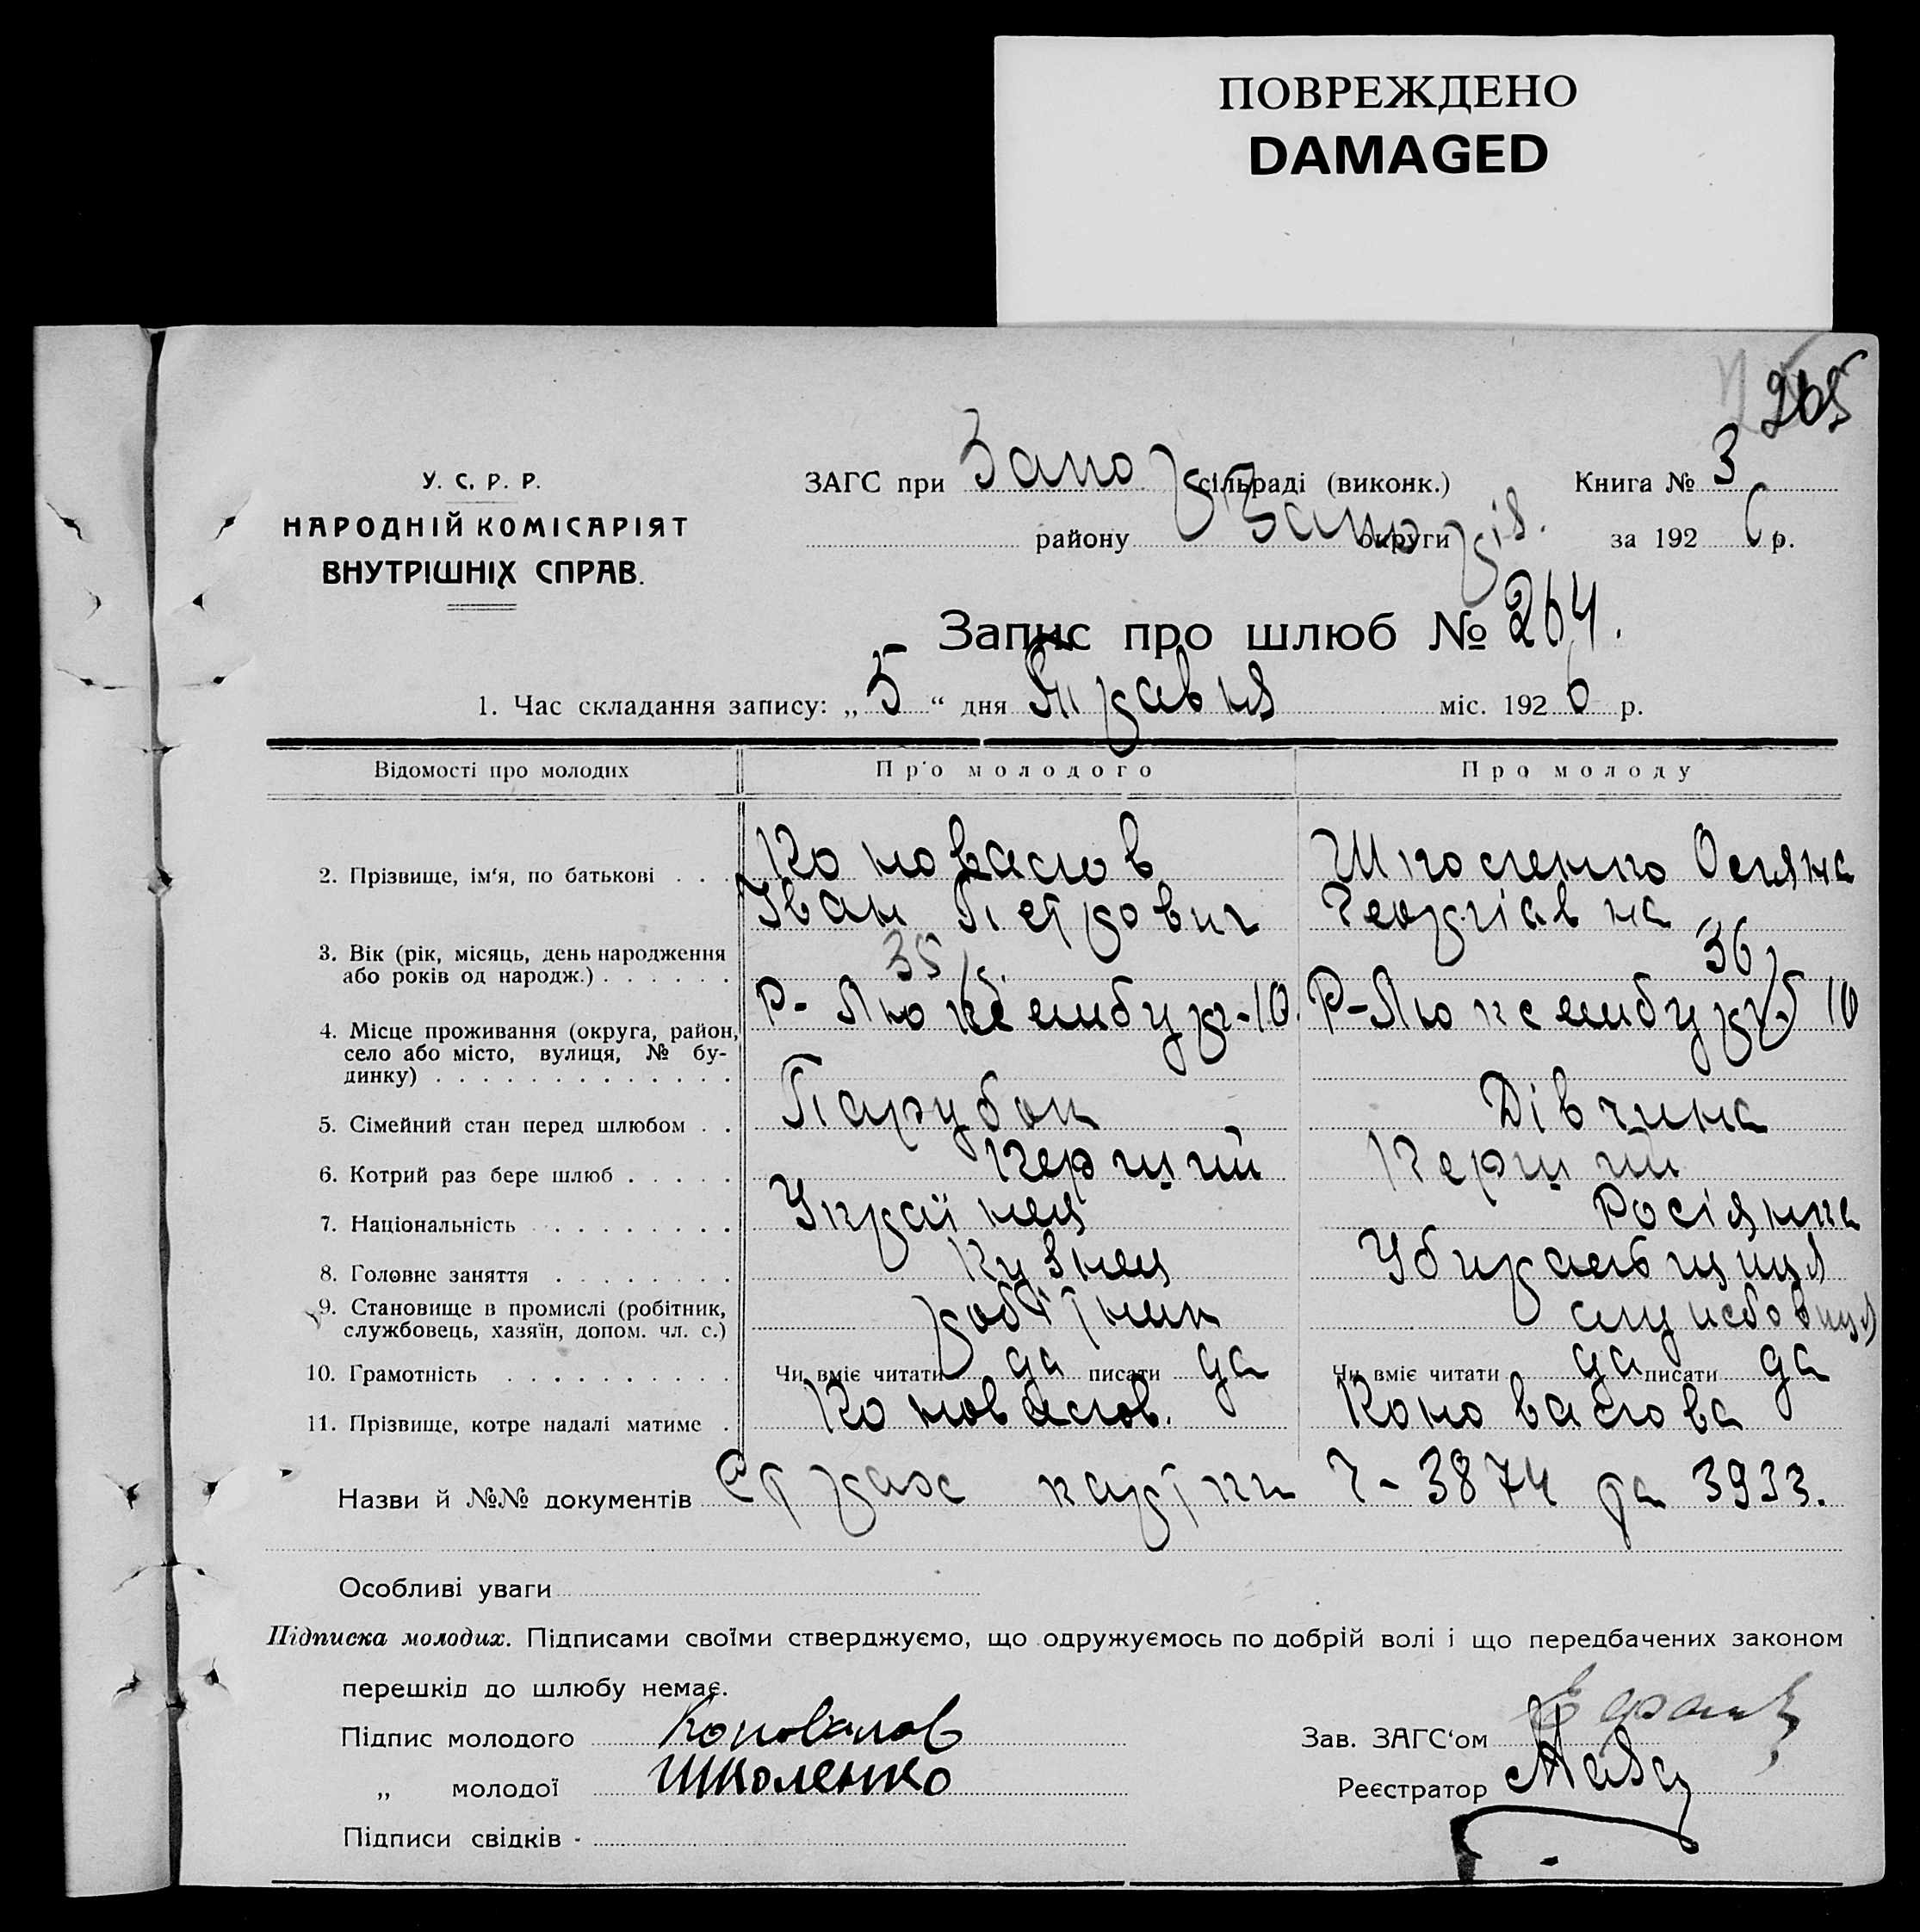 ПОВРЕЖДЕНО
DAMAGED
265
У. С. Р. Р.
НАРОДНІЙ КОМІСАРІЯТ
ВНУТРІШНІХ СПРАВ.
ЗАГС при Запор сільраді (виконк.) Книга № 3
району Запоріз. округи за 1926 р.
Запис про шлюб № 264.
1. Час складання запису: „5“ дня Травня міс. 1926 р.
Відомості про молодих Про молодого Про молоду
2. Прізвище, ім'я, по батькові . . . Коновалов Школенко Оеляна
Іван Петрович Георгіавна
3. Вік (рік, місяць, день народження
або років од народж.) . . . . . . 35 р. 36 р.
4. Місце проживання (округа, район, Р-Люксембург-10. Р-Люксембург 10
село або місто, вулиця, № бу-
динку) . . . . . . . . . . . . .
5. Сімейний стан перед шлюбом . . Парубок Дівчина
6. Котрий раз бере шлюб . . . . . Перший Перший
7. Національність . . . . . . . . Українец Росіянка
8. Головне заняття . . . . . . . . Кузнец Убиральщиця
9. Становище в промислі (робітник,
службовець, хазяїн, допом. чл. с.) робітник службовиця
10. Грамотність . . . . . . . . . . Чи вміє читати да писати да Чи вміє читати да писати да
11. Прізвище, котре надалі матиме . Коновалов. Коновалова
Назви й №№ документів Страх картки Ч-3874 та 3933.
Особливі уваги
Підписка молодих. Підписами своїми стверджуємо, що одружуємось по добрій волі і що передбачених законом
перешкід до шлюбу немає.
Підпис молодого Коновалов Зав. ЗАГС'ом
„ молодої Школенко Реєстратор
Підписи свідків -